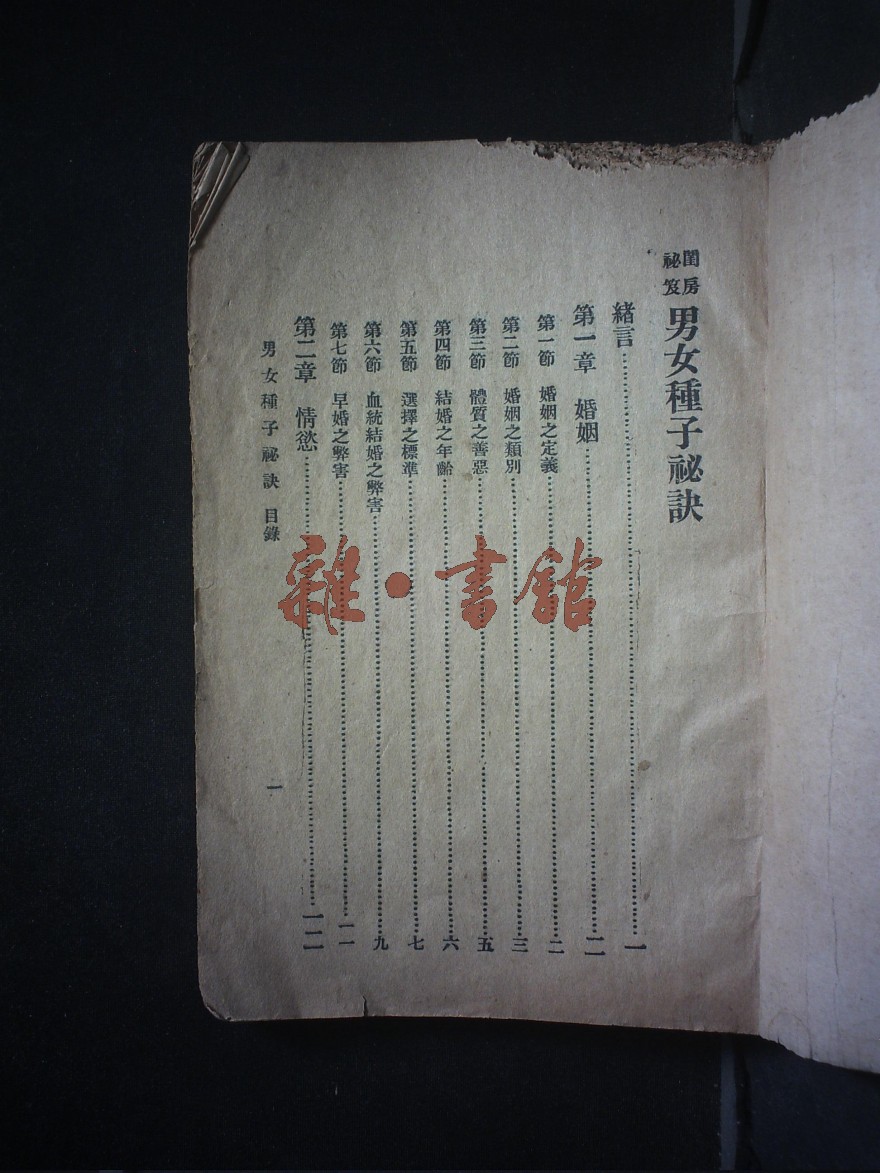 閨房
祕笈
男女種子祕訣
緒言……一
第一章 婚姻……二
第一節 婚姻之定義……二
第二節 婚姻之類別……三
第三節 體質之善惡……五
第四節 結婚之年齡……六
第五節 選擇之標準……七
第六節 血統結婚之弊害……九
第七節 早婚之弊害……一一
第二章 情慾……一二
男女種子祕訣 目錄
一
雜·書館